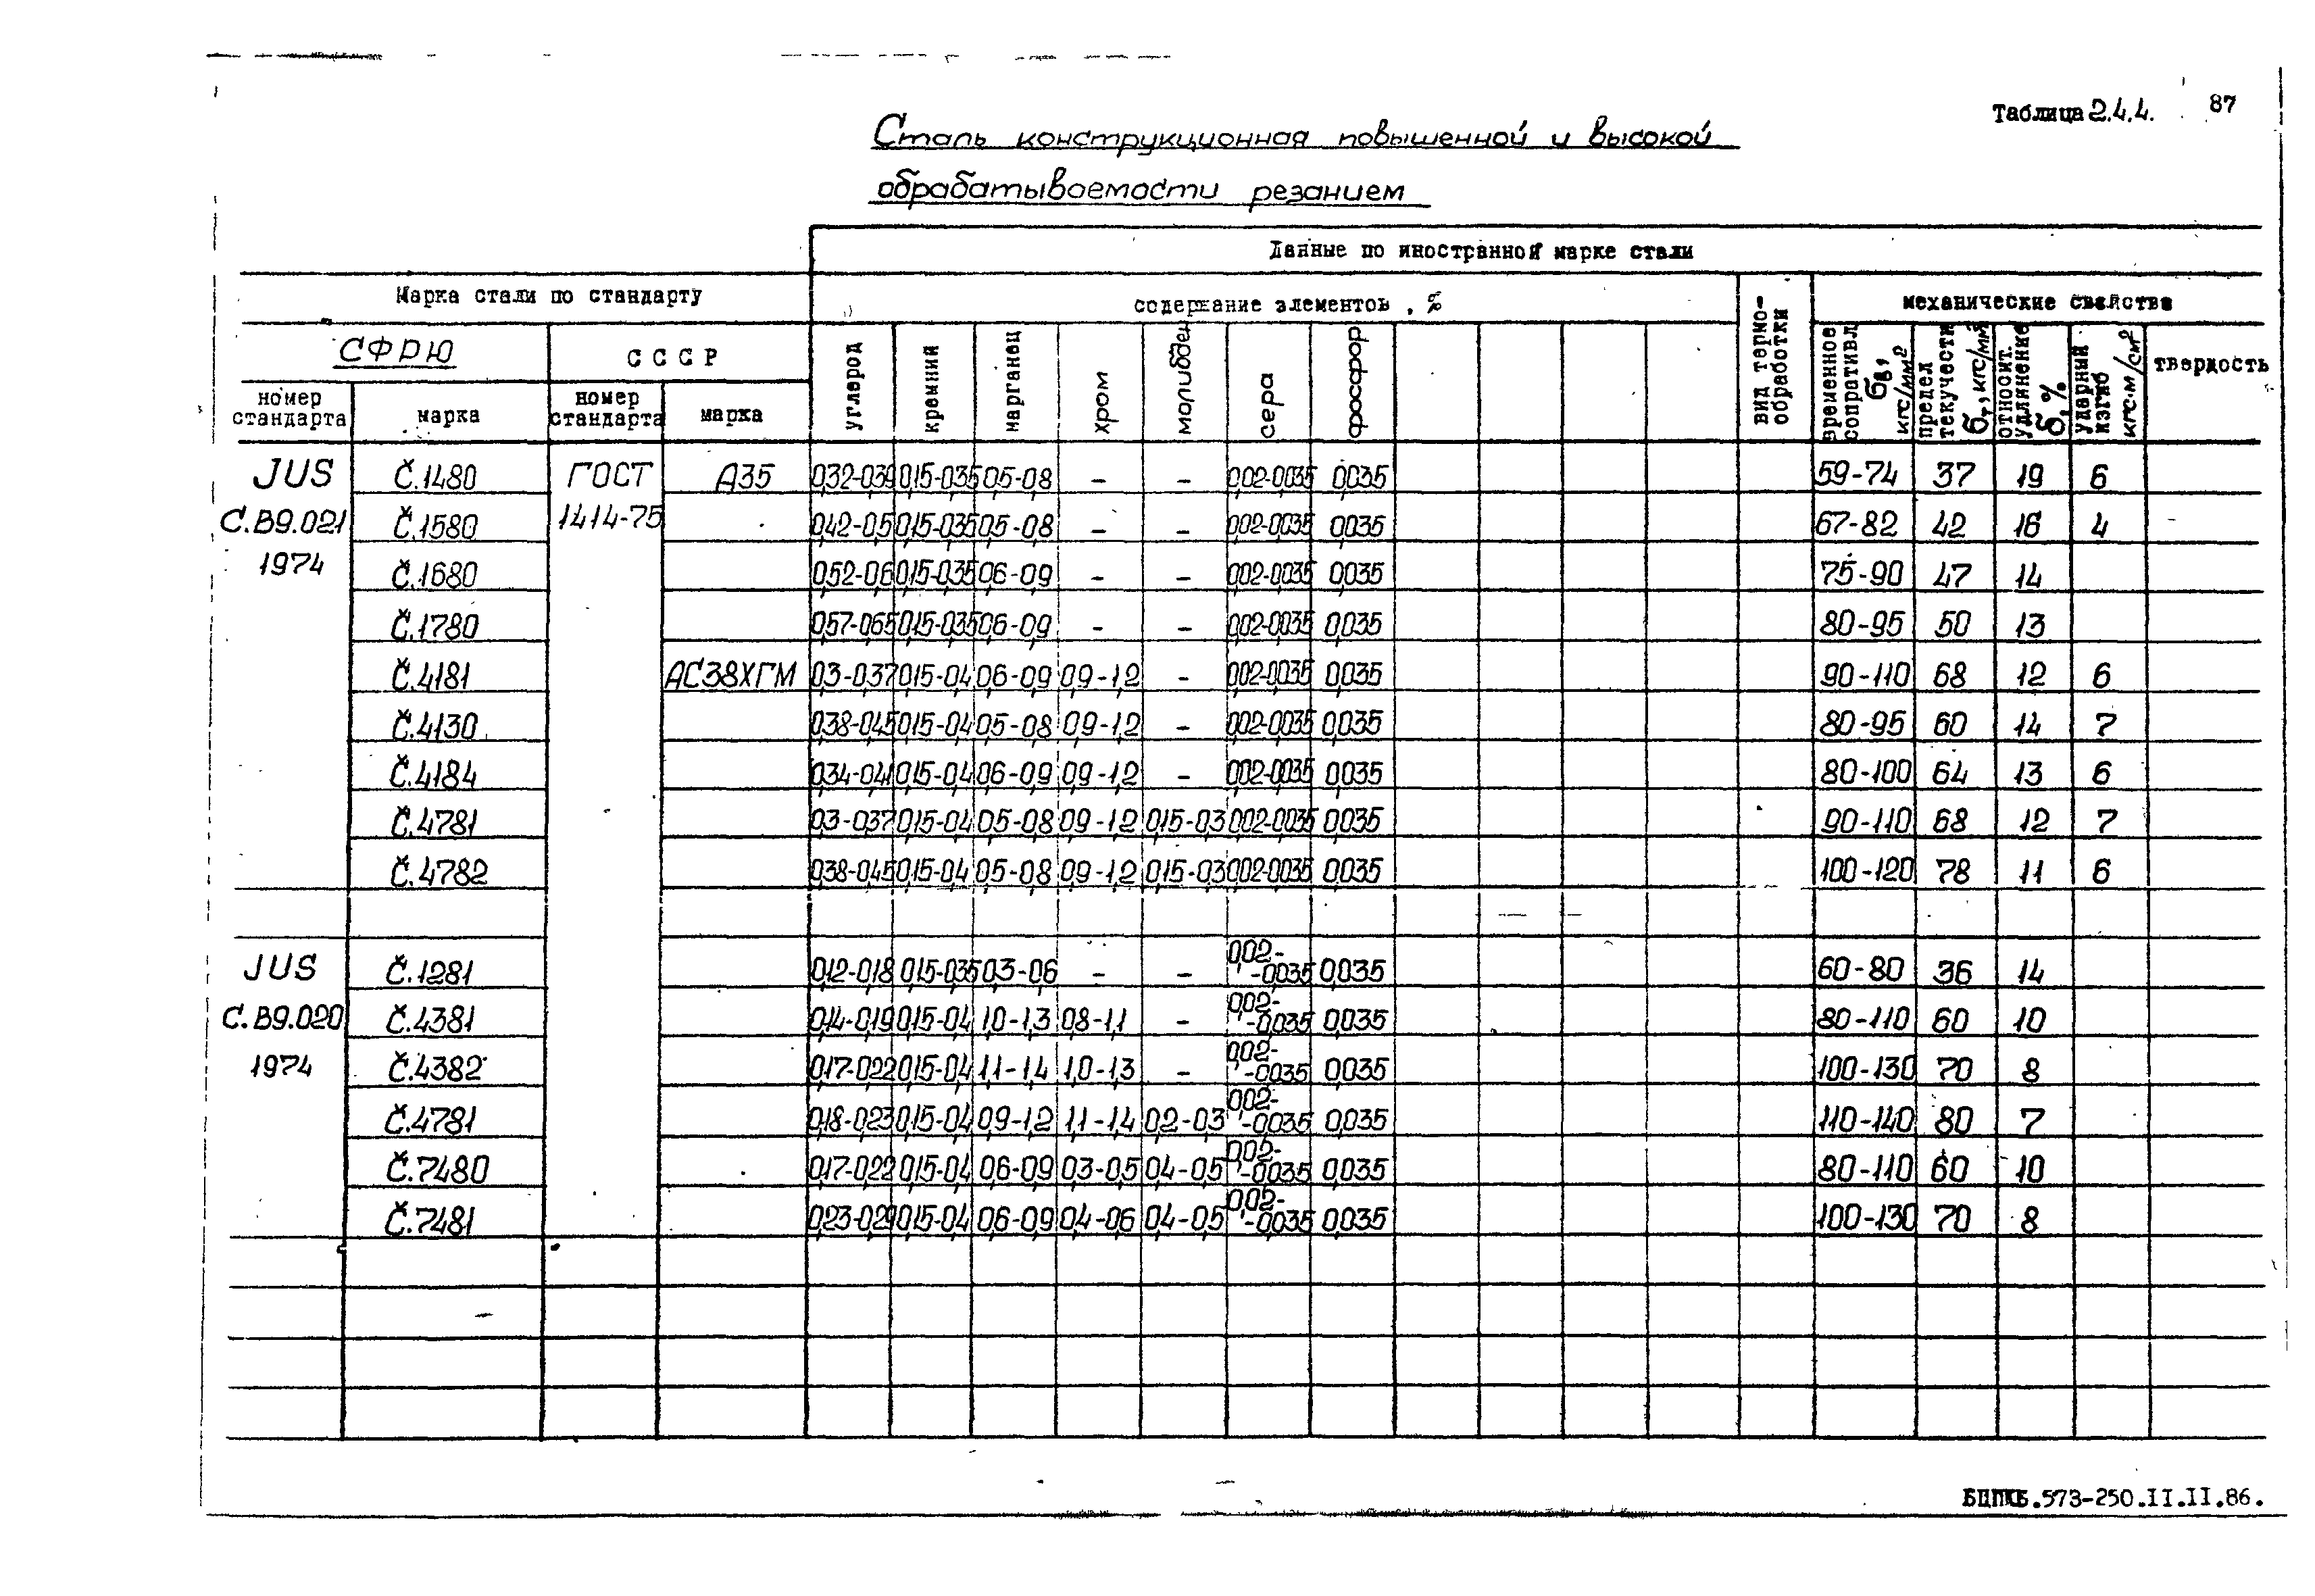 Таблица 2.4.4. 87
Сталь конструкционная повышенной и высокой
обрабатываемости резанием
Данные по иностранной марке стали
Марка стали по стандарту
содержание элементов , %
вид термо-
обработки
механические свойства
СФРЮ
СССР
номер
стандарта
марка
номер
стандарта
марка
углерод
кремний
марганец
хром
молибден
сера
фосфор
временное
сопротивл
σв,
кгс/мм2
предел
текучести
σт, кгс/мм2
относит.
удлинение
δ, %
ударный
изгиб
кгс·м/см2
твердость
JUS Č.1480 ГОСТ А35 0,32-0,39 0,15-0,35 0,5-0,8 - - 0,02-0,035 0,035 59-74 37 19 6
C.B9.021 Č.1580 1414-75 0,42-0,5 0,15-0,35 0,5-0,8 - - 0,02-0,035 0,035 67-82 42 16 4
1974 Č.1680 0,52-0,6 0,15-0,35 0,6-0,9 - - 0,02-0,035 0,035 75-90 47 14
Č.1780 0,57-0,65 0,15-0,35 0,6-0,9 - - 0,02-0,035 0,035 80-95 50 13
Č.4181 АС38ХГМ 0,3-0,37 0,15-0,4 0,6-0,9 0,9-1,2 - 0,02-0,035 0,035 90-110 68 12 6
Č.4130 0,38-0,45 0,15-0,4 0,5-0,8 0,9-1,2 - 0,02-0,035 0,035 80-95 60 14 7
Č.4184 0,34-0,41 0,15-0,4 0,6-0,9 0,9-1,2 - 0,02-0,035 0,035 80-100 64 13 6
Č.4781 0,3-0,37 0,15-0,4 0,5-0,8 0,9-1,2 0,15-0,3 0,02-0,035 0,035 90-110 68 12 7
Č.4782 0,38-0,45 0,15-0,4 0,5-0,8 0,9-1,2 0,15-0,3 0,02-0,035 0,035 100-120 78 11 6
JUS Č.1281 0,12-0,18 0,15-0,35 0,3-0,6 - - 0,02--0,035 0,035 60-80 36 14
C.B9.020 Č.4381 0,14-0,19 0,15-0,4 1,0-1,3 0,8-1,1 - 0,02--0,035 0,035 80-110 60 10
1974 Č.4382 0,17-0,22 0,15-0,4 1,1-1,4 1,0-1,3 - 0,02--0,035 0,035 100-130 70 8
Č.4781 0,18-0,23 0,15-0,4 0,9-1,2 1,1-1,4 0,2-0,3 0,02--0,035 0,035 110-140 80 7
Č.7480 0,17-0,22 0,15-0,4 0,6-0,9 0,3-0,5 0,4-0,5 0,02--0,035 0,035 80-110 60 10
Č.7481 0,23-0,29 0,15-0,4 0,6-0,9 0,4-0,6 0,4-0,5 0,02--0,035 0,035 100-130 70 8
БЦПКБ.573-250.II.II.86.